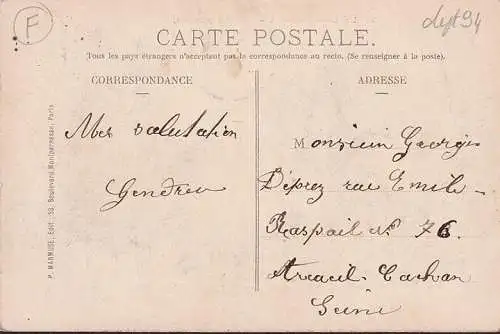 F
dept 94
CARTE POSTALE.
Tous les pays étrangers n'acceptent pas la correspondance au recto. (Se renseigner à la poste).
CORRESPONDANCE
Mes salutation
Gendreu
ADRESSE
Monsieur Georges
Déprez rue Emile
Raspail N° 76
Arcueil-Cachan
Seine
P. MARMUSE, Edit., 53, Boulevard Montparnasse, Paris